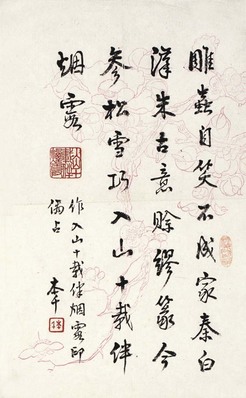 雕虫自笑不成家秦白
漢朱古意賒繆篆今
參松雪巧入山十載伴
烟霞
作入山十載伴烟霞印
偶占
本千